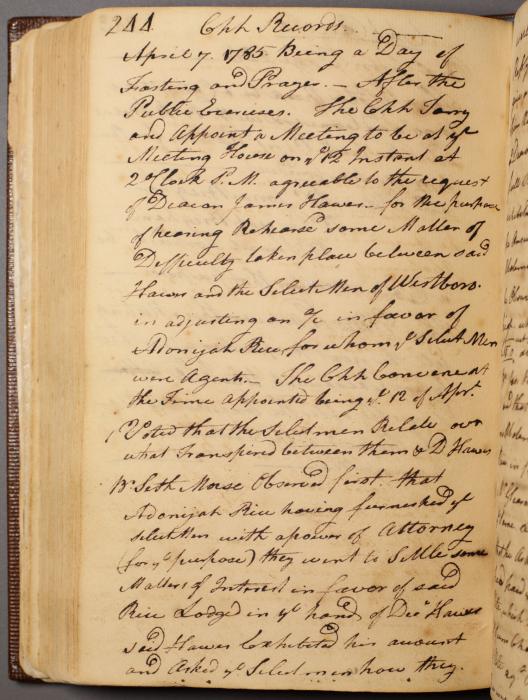 244 Chh Records.
April 7. 1785 Being a Day of
Fasting and Prayer. — After the
Public Exercises. The Chh Tarry
and Appoint a Meeting to be at ye
Meeting House on ye 12 Instant at
2 oClock P.M. agreeable to the request
of Deacon James Hawes — for the purpose
of hearing Rehearsd some Matter of
Difficulty taken place between said
Hawes and the Select Men of Westboro.
in adjusting an a/c in favor of
Adonijah Rice for whom ye Select Men
were Agents. — The Chh Convene at
the Time appointed being ye 12 of Aprl.
Voted that the Selectmen Relate over
what Transpired between them & D Hawes
Br Seth Morse Observed first that
Adonijah Rice having furnished ye
Selectmen with a power of Attorney
(for ye purpose) they went to Settle some
Matters of Interest in favor of said
Rice Lodged in ye hands of Deca Hawes
said Hawes Exhibited his account
and Asked ye Selectmen how they.